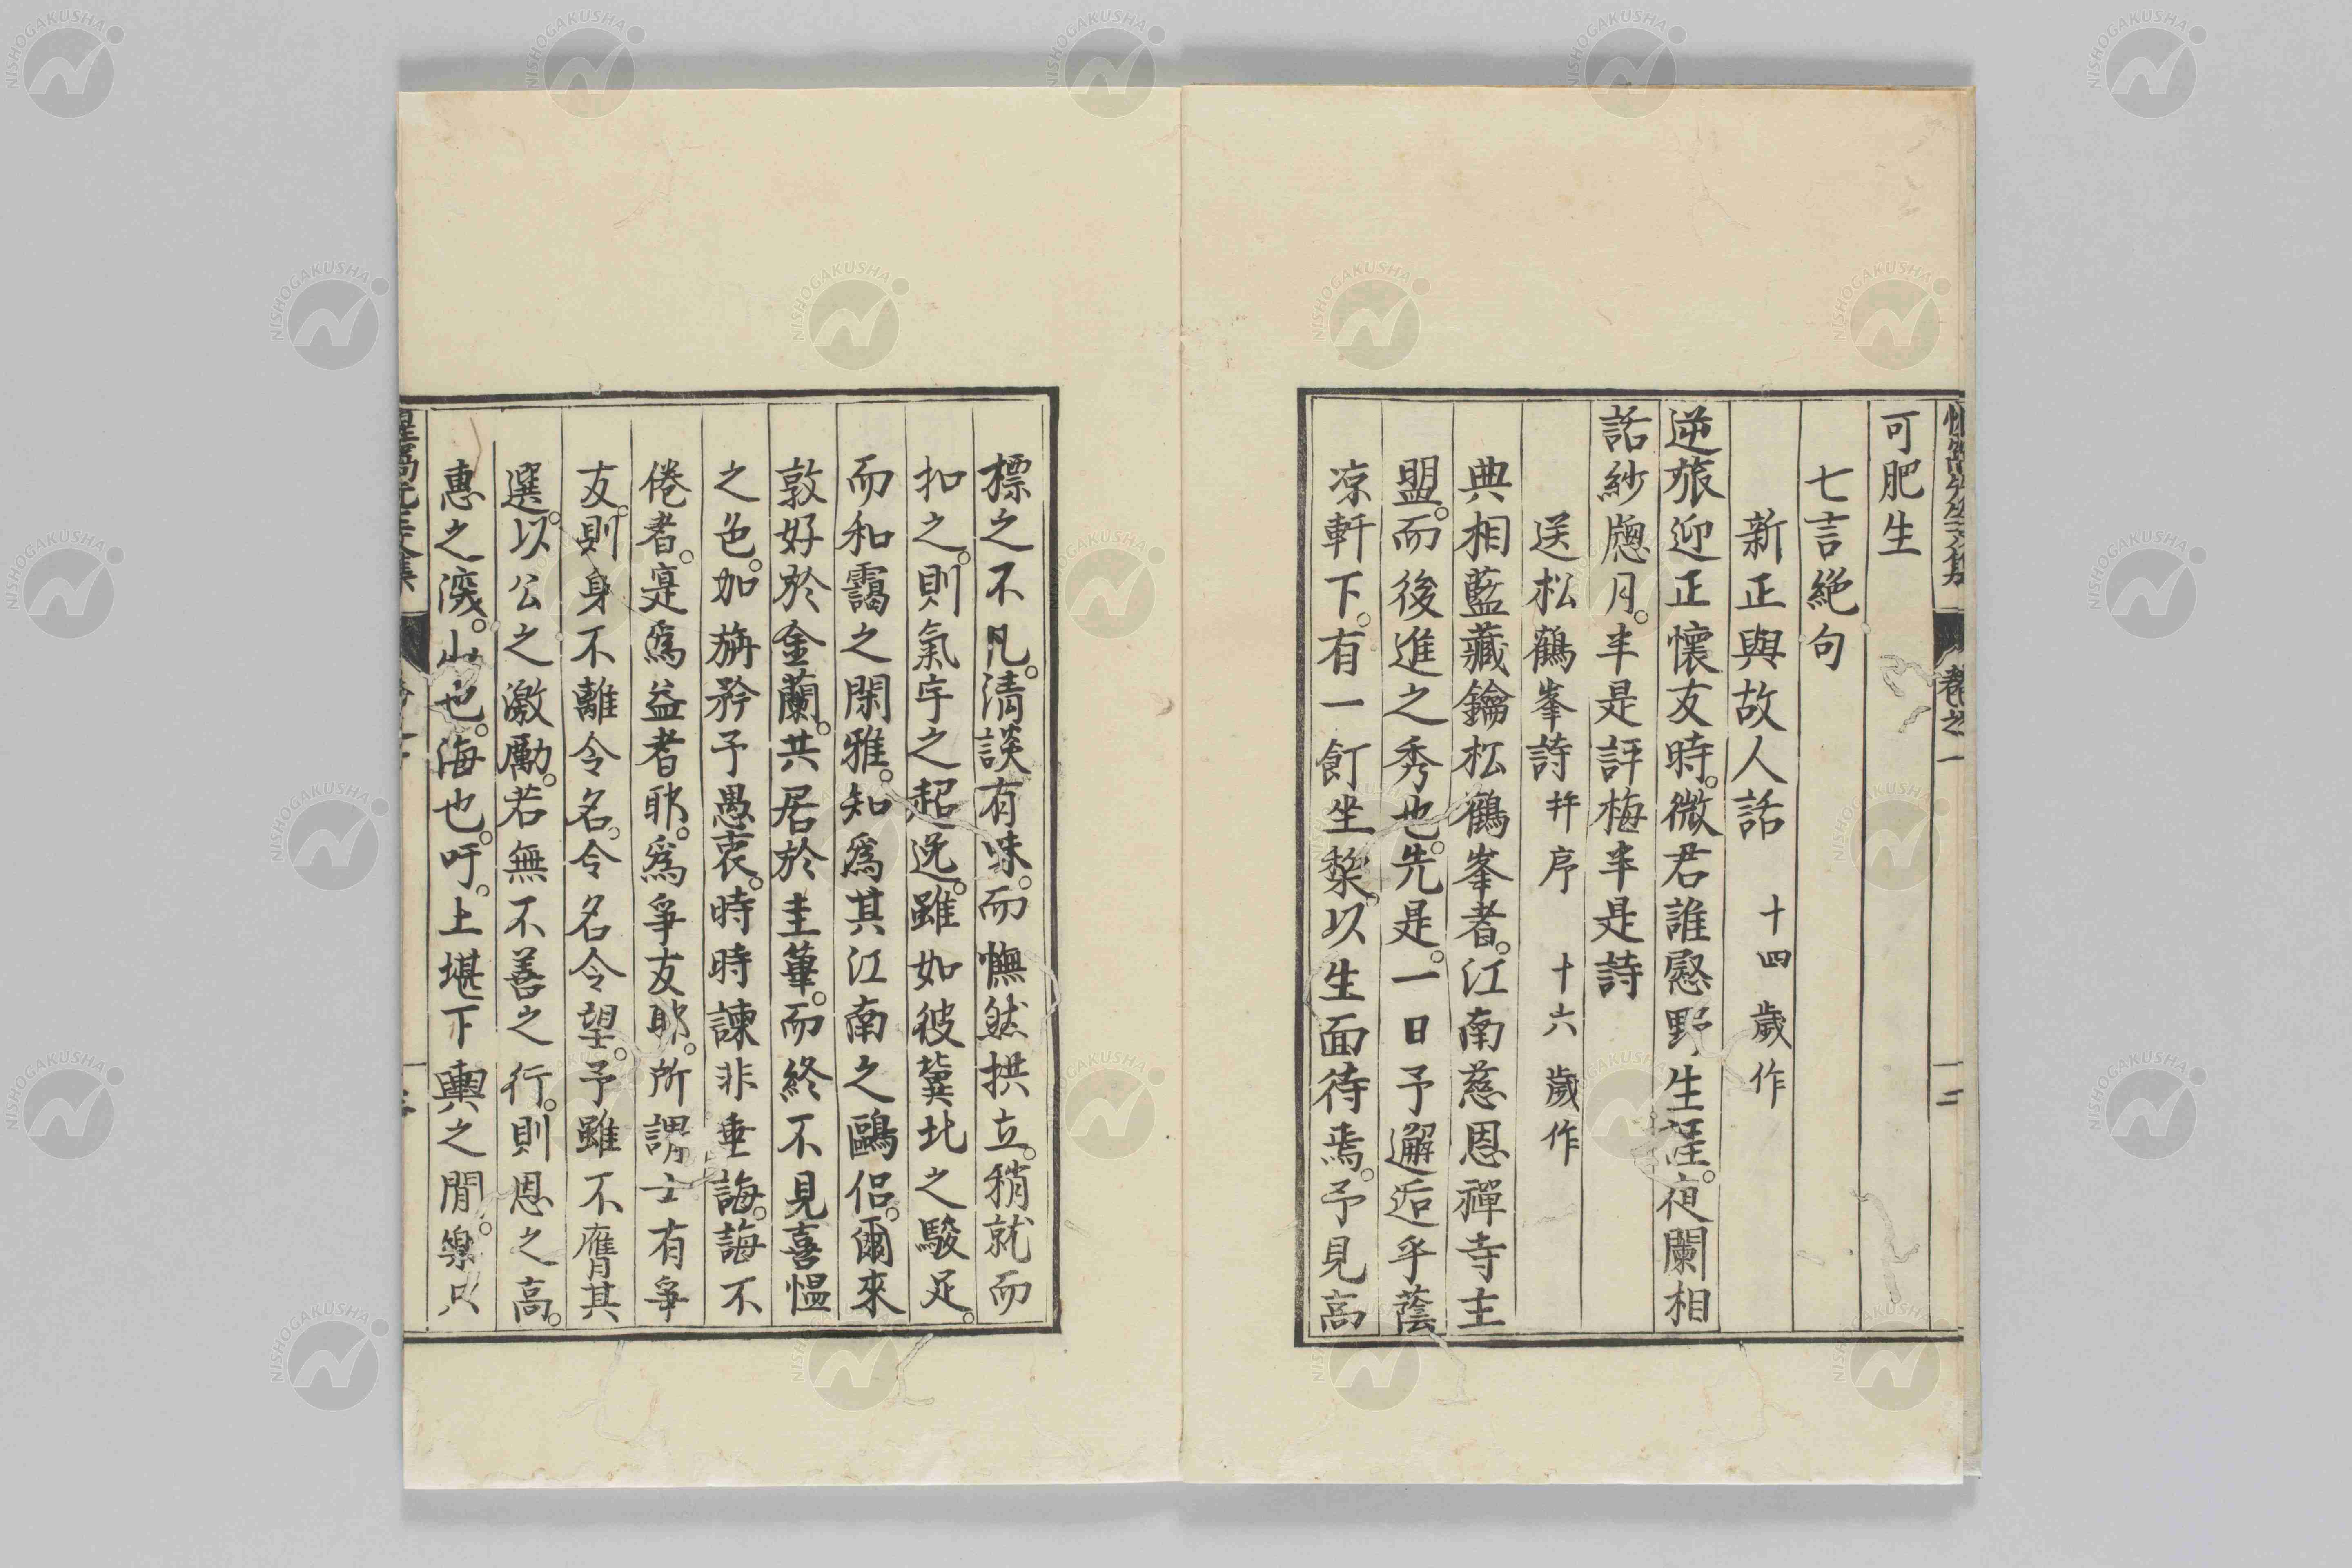 可肥生
七言絶句
新正與故人話 十四歳作
逆旅迎正懷友時。微君誰慰野生涯。夜闌相
話紗牕月。半是評梅半是詩
送松鶴峯詩 并序 十六歳作
典相藍藏鑰松鶴峯者。江南慈恩禪寺主
盟。而後進之秀也。先是。一日予邂逅乎蔭
凉軒下。有一飣坐棃。以生面待焉。予見高
標之不凡。清談有味。而憮然拱立。稍就而
扣之。則氣宇之超逸。雖如彼冀北之駿足。
而和靄之閑雅。知爲其江南之鷗侶。爾來
敦好於金蘭。共居於圭蓽。而終不見喜慍
之色。加旃矜予愚衷。時時諫非垂誨。誨不
倦者。寔爲益者耶。爲爭友耶。所謂士有爭
友。則身不離令名。令名令望。予雖不膺其
選。以公之激勵。若無不善之行。則恩之高。
惠之深。山也。海也。吁。上堪下輿之間。樂只
惺窩先生文集 卷之一 一二
NISHOGAKUSHA